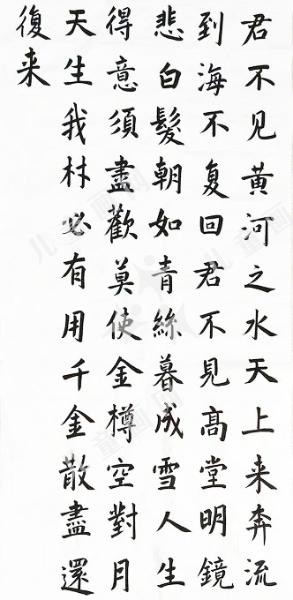 君不见黄河之水天上来奔流
到海不复回君不見高堂明鏡
悲白髮朝如青絲暮成雪人生
得意須盡歡莫使金樽空對月
天生我材必有用千金散盡還
復来